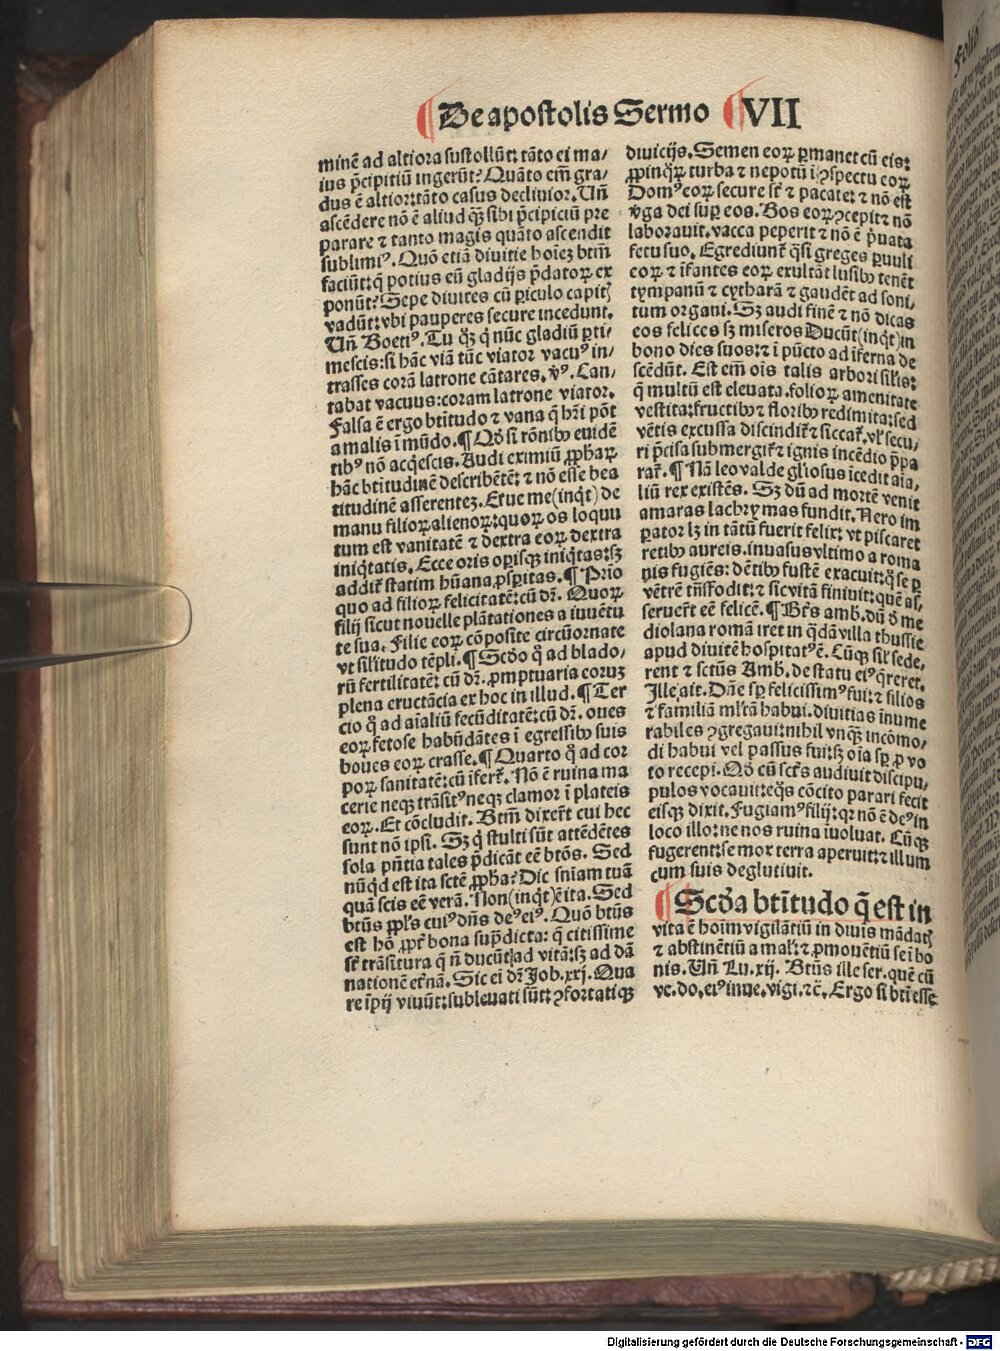 De apostolis Sermo VII
minē ad altiora sustollūt: tāto ei ma/
ius p̄cipitiū ingerūt? Quāto em̄ gra/
dus ē altior: tāto casus decliuior. Un̄
ascēdere nō ē aliud qꝫ sibi p̄cipiciū pre
parare ⁊ tanto magis quāto ascendit
sublimiꝰ. Quō etiā diuitie hoīez btm̄
faciūt: q̄ potius eū gladijs p̄datoꝝ ex
ponūt? Sepe diuites cū ꝑiculo capitꝭ
vadūt: vbi pauperes secure incedunt.
Un̄ Boetiꝰ. Tu qͥꝫ q̇ nūc gladiū ꝑti/
mescis: si hāc viā tūc viator vacuꝰ in/
trasses corā latrone cātares. v̓ꝰ. Can/
tabat vacuus: coram latrone viator.
Falsa ē ergo btītudo ⁊ vana q̄ hr̄i pōt
a malis ī mūdo. ¶ Qḋ si rōnibꝰ euidē
tibꝰ nō acq̇escis. Audi eximiū ꝓphaꝝ
hāc btītudinē describētē: ⁊ nō esse bea
titudinē asserentez. Erue me (inqt̄) de
manu filioꝝ alienoꝝ: quoꝝ os loquu
tum est vanitatē ⁊ dextra eoꝝ dextra
iniq̇tatis. Ecce oris oꝑisqꝫ iniq̇tas: sꝫ
addit̄ statim hūana ꝓsꝑitas. ¶ Prīo
quo ad filioꝝ felicitatē: cū dr̄. Quoꝝ
filij sicut nouelle plātationes a iuuētu
te sua. Filie eoꝝ cōposite circūornate
vt silitudo tēpli. ¶ Scḋo q̊ ad blado/
rū fertilitatē: cū dr̄. ꝓmptuaria eoruꝫ
plena eructācia ex hoc in illud. ¶ Ter
cio q̊ ad aīaliū fecūditatē: cū dr̄. oues
eoꝝ fetose habūdātes ī egressibꝰ suis
boues eoꝝ crasse. ¶ Quarto q̊ ad cor
poꝝ sanitatē: cū īfert̄. Nō ē ruina ma
cerie neqꝫ trāsitꝰ neqꝫ clamor ī plateis
eoꝝ. Et cōcludit. Btm̄ dixer̄t cui hec
sunt nō ipsi. Sꝫ q̇ stulti sūt attēdētes
sola pn̄tia tales p̄dicāt eē btōs. Sed
nūqd est ita sctē ꝓpha? Dic sniam tuā
quā scis eē verā. Non (inqt̄) ē ita. Sed
btūs ppl̓s cuiꝰ dn̄s deꝰ eiꝰ. Quō btūs
est hō ꝓpt̓ bona sup̄dicta: q̄ citissime
st̄ trāsitura q̄ n̄ ducūt ad vitā: sꝫ ad dā
nationē etnā. Sic ei dr̄ Job. xxj. Qua
re īpij viuūt: subleuati sūt: ꝯfortatiqꝫ
diuicijs. Semen eoꝝ ꝑmanet cū eis:
ꝓpinq̄ꝝ turba ⁊ nepotū ī ꝯspectu eoꝝ
Domꝰ eoꝝ secure st̄ ⁊ pacate: ⁊ nō est
v̓ga dei suꝑ eos. Bos eoꝝ ꝯcepit ⁊ nō
laborauit. vacca peperit ⁊ nō ē p̄uata
fetu suo. Egrediunt̄ q̄si greges ꝑuuli
eoꝝ ⁊ īfantes eoꝝ exultāt lusibꝰ tenēt
tympanū ⁊ cytharā ⁊ gaudēt ad soni/
tum organi. Sꝫ audi finē ⁊ nō dicas
eos felices sꝫ miseros Ducūt (inqt̄) in
bono dies suos: ⁊ ī pūcto ad īferna de
scēdūt. Est em̄ oīs talis arbori sil̓is:
q̄ multū est eleuata. folioꝝ amenitate
vestita: fructibꝰ ⁊ floribꝰ redimita: sed
vētis excussa discindit̄ ⁊ siccat̄. vl̓ secu/
ri p̄cisa submergit̄ ⁊ ignis incēdio p̄pa
rat̄. ¶ Nā leo valde gl̓iosus īcedit aīa/
liū rex existēs. Sꝫ dū ad mortē venit
amaras lachrymas fundit. Nero im
perator lꝫ in tātū fuerit felix: vt piscaret
retibꝰ aureis. inuasus vltimo a roma
nis fugiēs: dētibꝰ fustē exacuit: q̊ se ꝑ
vētrē tnsfodit: ⁊ sic vitā finiuit: quē as/
seruer̄t eē felicē. ¶ Bt̄s amb. dū ḋ me
diolana romā iret in q̄dā villa thussie
apud diuitē hospitatꝰ ē. Cūqꝫ sil̓ sede/
rent ⁊ sctūs Amb. de statu eiꝰ q̄reret.
Ille ait. Dn̄e sꝑ felicissimꝰ fui: ⁊ filios
⁊ familiā ml̓tā habui. diuitias inume
rabiles ꝯgregaui: nihil vnqꝫ incōmo/
di habui vel passus fui: sꝫ oīa sꝑ ꝓ vo
to recepi. Qḋ cū sct̄s audiuit discipu/
pulos vocauit: eq̊s cōcito parari fecit
eisqꝫ dixit. Fugiamꝰ filij: qꝛ nō ē deꝰ in
loco illo: ne nos ruina iuoluat. Cūqꝫ
fugerent: se mox terra aperuit: ⁊ illum
cum suis deglutiuit.
Scḋa btītudo q̄ est in
vita ē hoīm vigilātiū in diuis mādatꝭ
⁊ abstinētiū a mal̓: ⁊ ꝓmouētiū se ī bo
nis. Un̄ Lu. xij. Btūs ille ser. quē cū
ve. do. eiꝰ inue. vigi. ⁊c̄. Ergo si btī esse
Folio
Digitalisierung gefördert durch die Deutsche Forschungsgemeinschaft - DFG